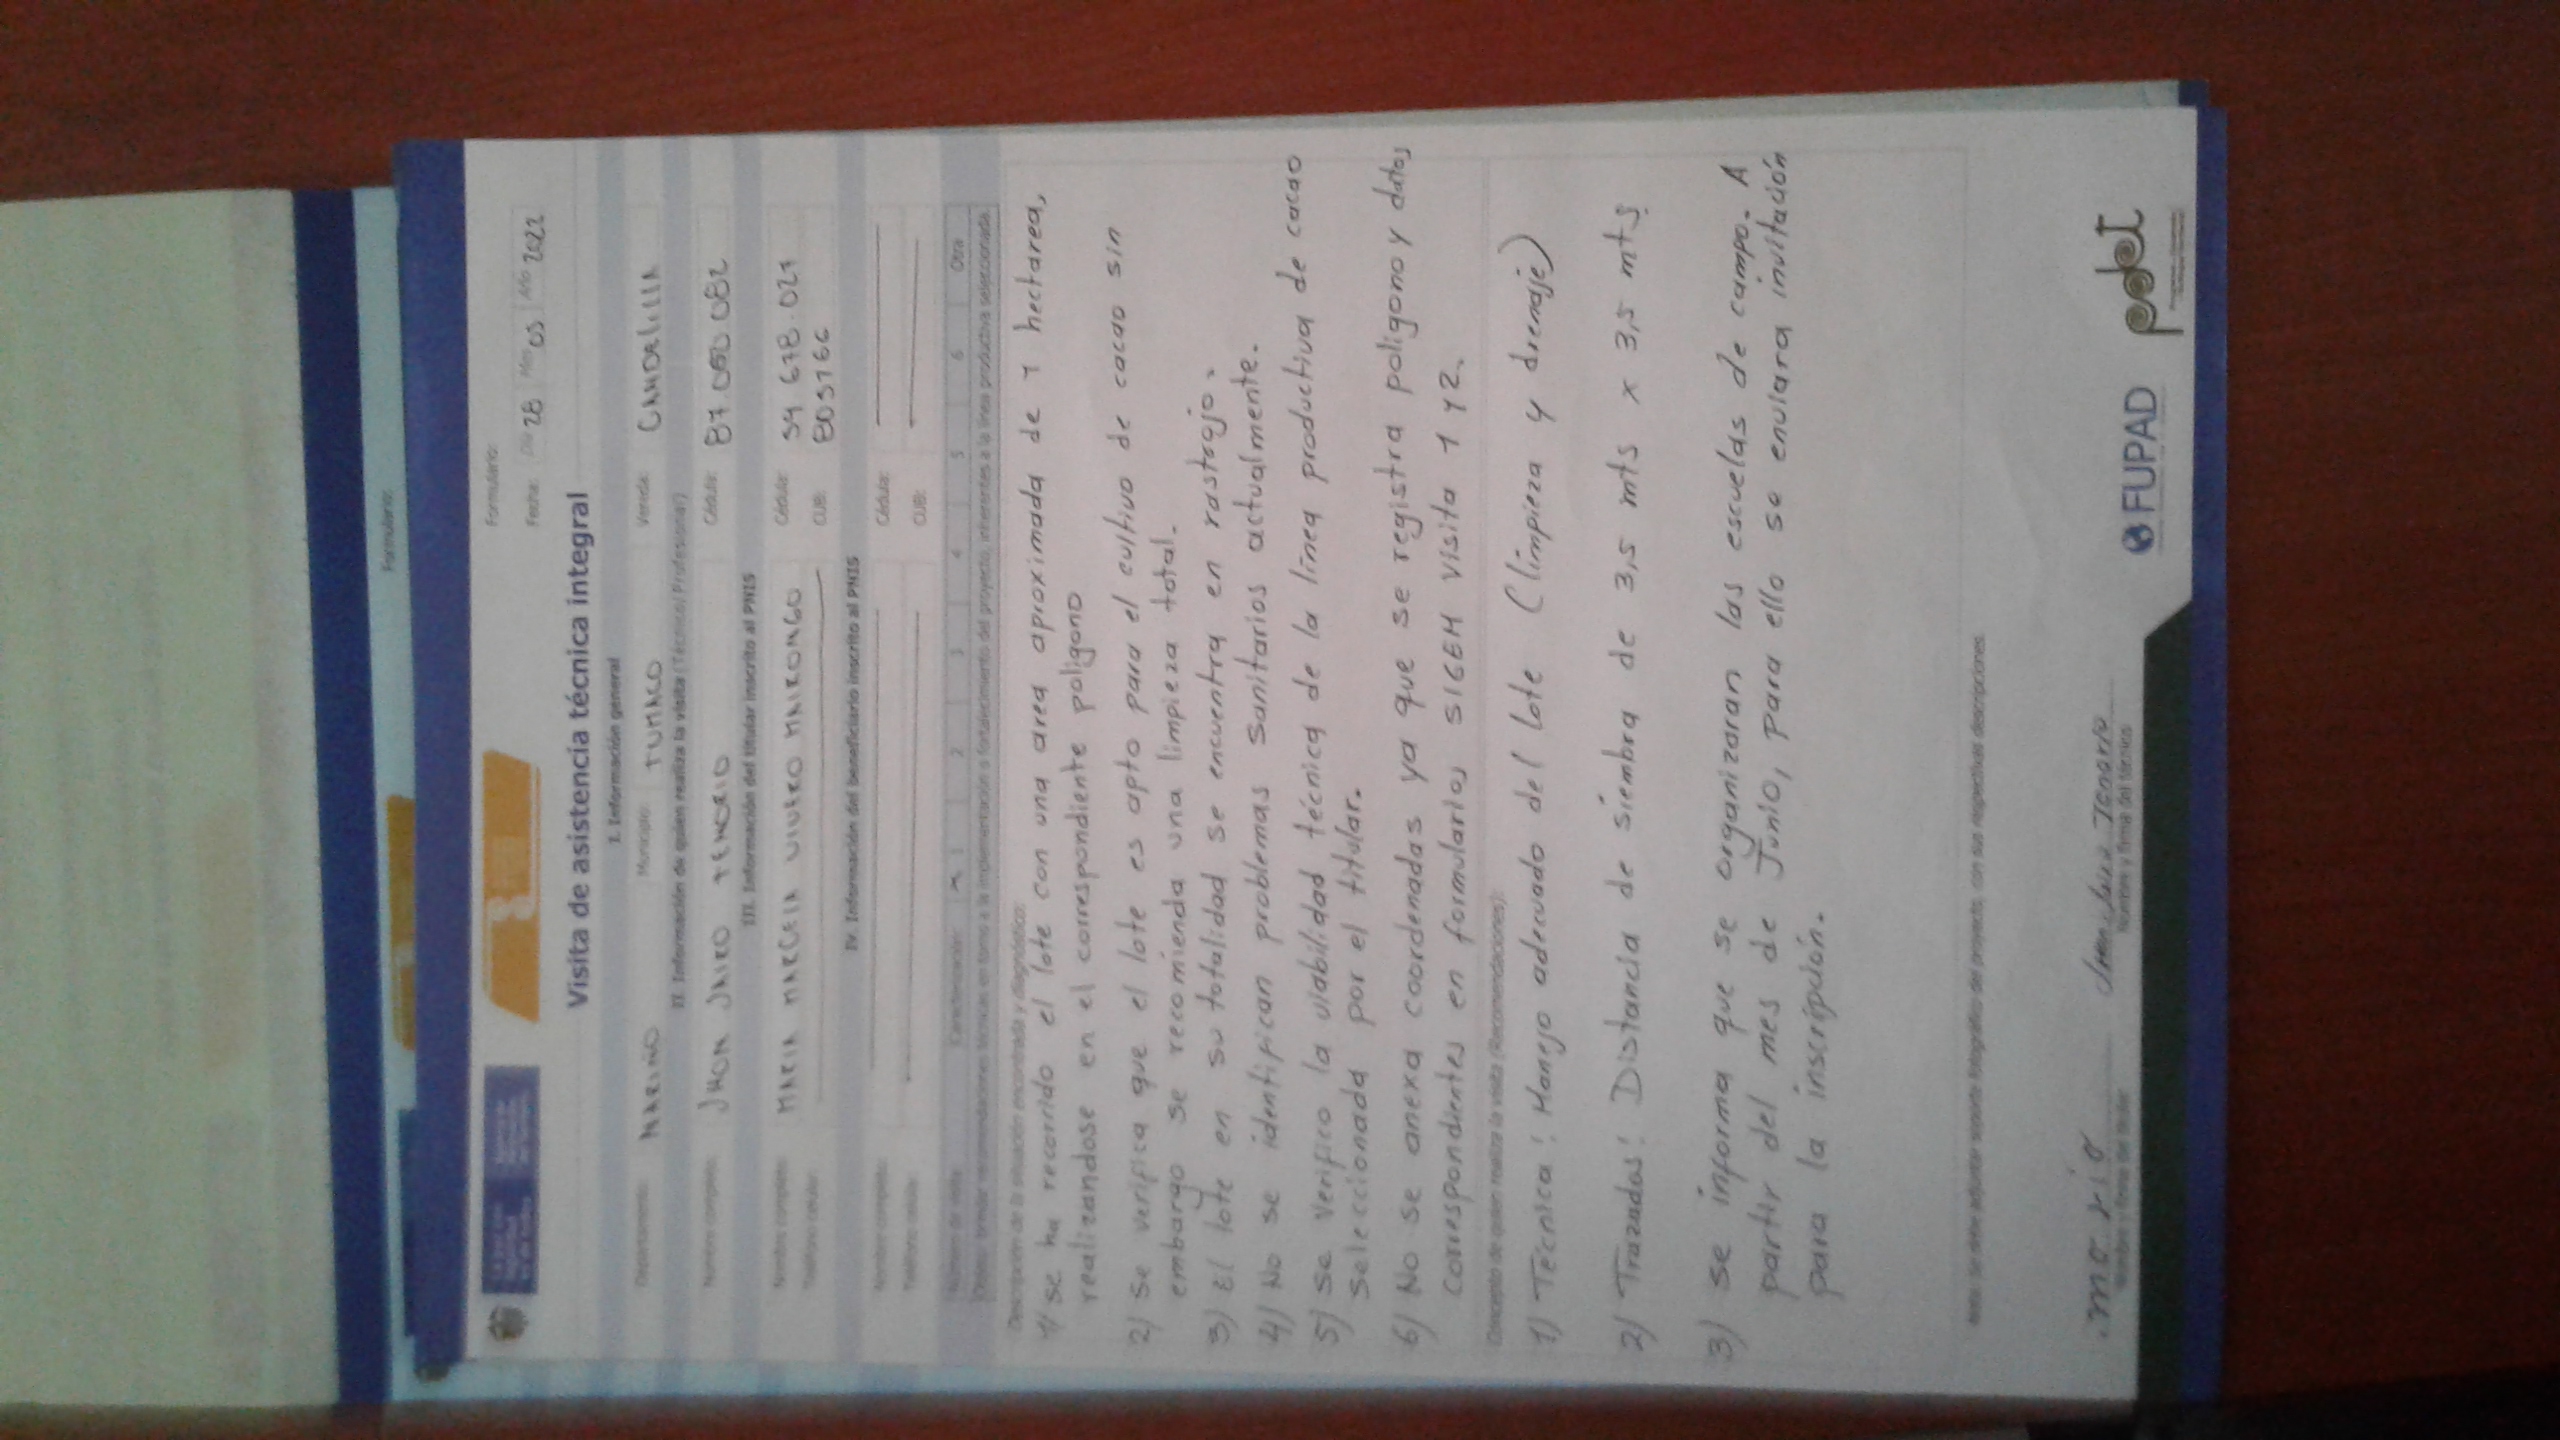 Formulario:
Formulario:
Fecha: Día 28 Mes 05 Año 2022
Visita de asistencia técnica integral
I. Información general
Departamento: NARIÑO Municipio: TUMACO Vereda: CANDELILLA
II. Información de quien realiza la visita (Técnico/Profesional)
Nombre completo: JHON JAIRO TENORIO Cédula: 87.050.082
III. Información del titular inscrito al PNIS
Nombre completo: MARIA MARCELA VIVERO MAIRONGO Cédula: 59 678.027
Teléfono celular: CUB: 805766
IV. Información del beneficiario inscrito al PNIS
Nombre completo: Cédula:
Teléfono celular: CUB:
Número de visita: Caracterización: X 1 2 3 4 5 6 Otra
Objeto: brindar recomendaciones técnicas en torno a la implementación o fortalecimiento del proyecto, inherentes a la línea productiva seleccionada.
Descripción de la situación encontrada y diagnóstico:
1) se ha recorrido el lote con una area aproximada de 1 hectarea,
realizandose en el correspondiente poligono
2) se verifica que el lote es apto para el cultivo de cacao sin
embargo se recomienda una limpieza total.
3) El lote en su totalidad se encuentra en rastrojo.
4) No se identifican problemas Sanitarios actualmente.
5) se verifico la viabilidad técnica de la línea productiva de cacao
seleccionada por el titular.
6) No se anexa coordenadas ya que se registra poligono y datos
correspondientes en formularios SIGEH visita 1 y 2.
Concepto de quien realiza la visita (Recomendaciones):
1) Técnica: Manejo adecuado del lote (limpieza y drenaje)
2) Trazados: Distancia de siembra de 3,5 mts x 3,5 mts
3) se informa que se organizaran las escuelas de campo. A
partir del mes de Junio, para ello se enviara invitación
para la inscripción.
Nota: Se debe adjuntar soporte fotográfico del proyecto, con sus respectivas descripciones.
maria
Nombre y firma del titular
Nombre y firma del técnico
FUPAD
pdet